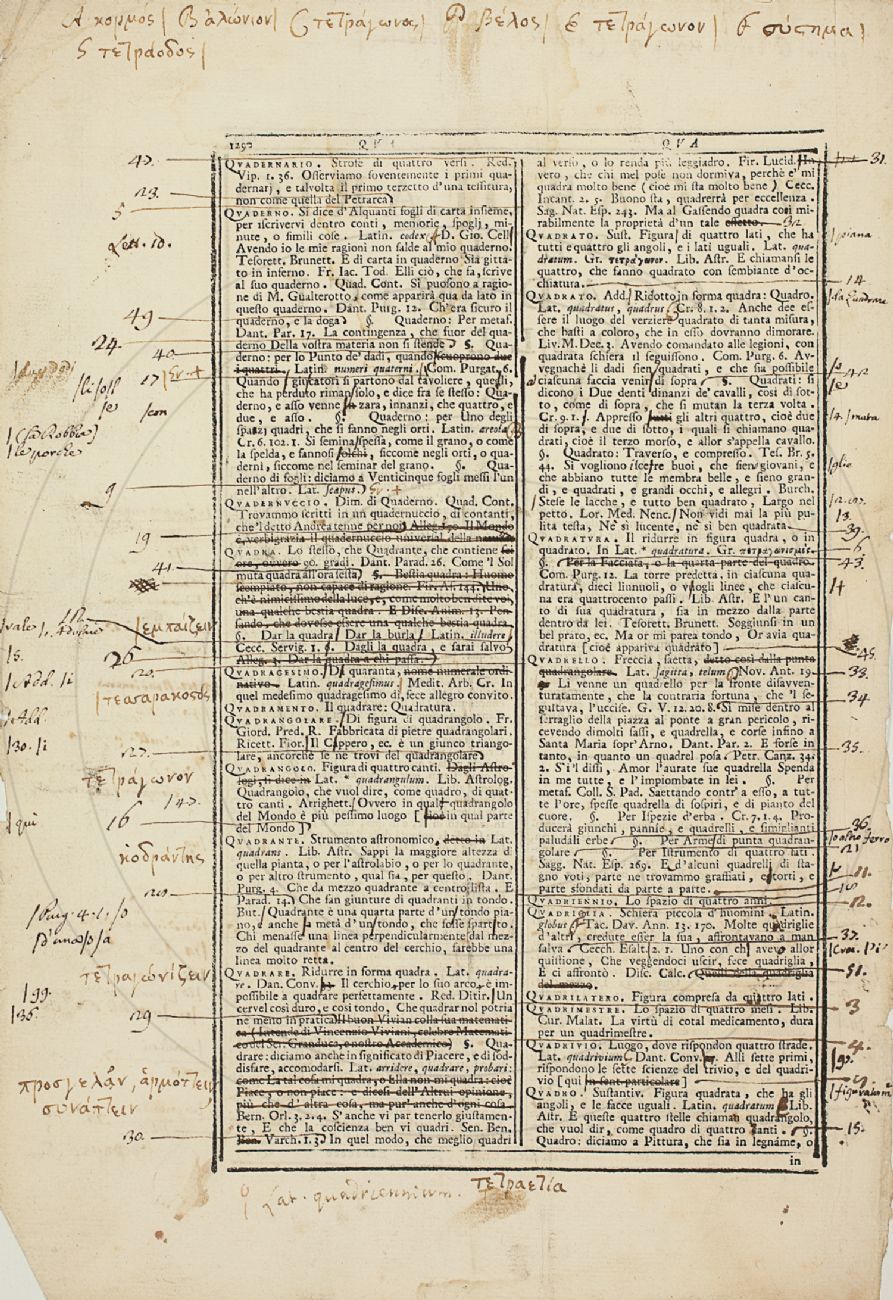 A κορμός| B ἁλώνιον| C τετράγωνος| D βέλος| E τετράγωνον| F σύστημα|
G τετράοδος|
1292 QVA QVA
QVADERNARIO. Strofe di quattro versi. Red.
Vip. 1. 36. Osserviamo sovvente i primi qua-
dernarj, e talvolta il primo terzetto d'una tessitura,
non come quella del Petrarca
QVADERNO. Si dice d'Alquanti fogli di carta insieme,
per iscrivervi dentro conti, memorie, spogli, mi-
nute, o simili cose. Latin. codex. D. Gio. Cell.
Avendo io le mie ragioni non salde al mio quaderno.
Tesorett. Brunett. E di carta in quaderno Sia gitta-
to in inferno. Fr. Iac. Tod. Elli ciò, che fa, scrive
al suo quaderno. Quad. Cont. Si puosono a ragio-
ne di M. Gualterotto, come apparirà qua da lato in
questo quaderno. Dánt. Purg. 12. Ch'era sicuro il
quaderno, e la doga §. Quaderno: Per metaf.
Dant. Par. 17. La contingenza, che fuor del qua-
derno Della vostra materia non si stende §. Qua-
derno: per lo Punto de' dadi, quando scuoprono due
i quattri. Latin. numeri quaterni. Com. Purgat. 6.
Quando i giucatori si partono dal tavoliere, quegli,
che ha perduto riman solo, e dice fra se stesso: Qua-
derno, e asso venne in zara, innanzi, che quattro, e
due, e asso §. Quaderno: per Uno degli
spazj quadri, che si fanno negli orti. Latin. areola
Cr. 6. 102. 1. Si semina spessa, come il grano, o come
la spelda, e fannosi solchi, siccome negli orti, o qua-
derni, siccome nel seminar del grano. §. Qua-
derno di fogli: diciamo a Venticinque fogli messi l'un
nell'altro. Lat. scapus.
QVADERNVCCIO. Dim. di Quaderno. Quad. Cont.
Trovammo scritti in un quadernuccio, di contanti,
che'l detto Andrea tenne per noi Alleg. 150. Il Mondo
è, verbigrazia il quadernuccio universal della
QVADRA. Lo stesso, che Quadrante, che contiene
ore, ovvero 90. gradi. Dant. Parad. 26. Come 'l Sol
muta quadra all'ora sesta §. Bestia quadra: Huomo
scempiato, non capace di ragione. Fir. As. 144. Uno,
ch'è nimicissimo della luce, e, come molto ben dite voi,
una qualche bestia quadra. E Disc. Anim. 13. Pen-
sando, che dovesse essere una qualche bestia quadra
§. Dar la quadra Dar la burla Latin. illudere
Cecc. Servig. 1. §. Dagli la quadra, e sarai salvo
Alleg. 3. Dar la quadra a chi passa.
QVADRAGESIMO. Di quaranta, nome numerale ordi-
nativo. Latin. quadragesimus. Medit. Arb. Cr. In
quel medesimo quadragesimo dì, fece allegro convito.
QVADRAMENTO. Il quadrare: Quadratura.
QVADRANGOLARE. Di figura di quadrangolo. Fr.
Giord. Pred. R. Fabbricata di pietre quadrangolari.
Ricett. Fior. Il Cippero, ec. è un giunco triango-
lare, ancorchè se ne trovi del quadrangolare
QVADRANGOLO. Figura di quattro canti. Dagli Astro-
logi si dice in Lat. * quadrangulum. Lib. Astrolog.
Quadrangolo, che vuol dire, come quadro, di quat-
tro canti. Arrighett. Ovvero in qual quadrangolo
del Mondo è più pessimo luogo [ cioè in qual parte
del Mondo ]
QVADRANTE. Strumento astronomico, detto in Lat.
quadrans. Lib. Astr. Sappi la maggiore altezza d
quella pianta, o per l'astrolabio, o per lo quadrante,
o per altro strumento, qual sia, per questo. Dant.
Purg. 4. Che da mezzo quadrante a centro lista. E
Parad. 14. Che fan giunture di quadranti in tondo.
But. Quadrante è una quarta parte d'un tondo pia-
no, e anche la metà d'un tondo, che fosse spartito.
Chi menasse una linea perpendicularmente dal mez-
zo del quadrante al centro del cerchio, farebbe una
linea molto retta.
QVADRARE. Ridurre in forma quadra. Lat. quadra-
re. Dan. Conv. Il cerchio, per lo suo arco, è im-
possibile a quadrare perfettamente. Red. Ditir. Un
cervel così duro, e così tondo, Che quadrar nol potria
ne meno in pratica Il buon Vivian colla sua matemati-
ca (Intende di Vincenzio Viviani, celebre Matemati-
co del Ser. Granduca, e nostro Accademico) §. Qua-
drare: diciamo anche in significato di Piacere, e di sod-
disfare, accomodarsi. Lat. arridere, quadrare, probari:
come La tal cosa mi quadra, o Ella non mi quadra: cioè
Piace, o non piace: e dicesi dell'Altrui opinione,
più che d'altra cosa, ma pur anche d'ogni cosa.
Bern. Orl. 3. 2. 4. S'anche vi par tenerlo giustamen-
te, E che la coscienza ben vi quadri. Sen. Ben.
Varch. 1. 3. In quel modo, che meglio quadri
al verso, o lo renda più leggiadro. Fir. Lucid. In
vero, che chi mel pose non dormiva, perchè e' mi
quadra molto bene ( cioè mi sta molto bene ) Cecc.
Incant. 2. 5. Buono sta, quadrerrà per eccellenza.
Sag. Nat. Esp. 243. Ma al Gassendo quadra così mi-
rabilmente la proprietà d'un tale effetto.
QVADRATO. Sust. Figura di quattro lati, che ha
tutti e quattro gli angoli, e i lati uguali. Lat. qua-
dratum. Gr. τετράγωνον. Lib. Astr. E chiamansi le
quattro, che fanno quadrato con sembiante d'oc-
chiatura.
QVADRATO. Add. Ridotto in forma quadra: Quadro.
Lat. quadratus, quadrus. Cr. 8. 1. 2. Anche dee es-
sere il luogo del verziere quadrato di tanta misura,
che basti a coloro, che in esso dovranno dimorare.
Liv. M. Dec. 3. Avendo comandato alle legioni, con
quadrata schiera il seguissono. Com. Purg. 6. Av-
vegnachè li dadi sien quadrati, e che sia possibile
a ciascuna faccia venir di sopra §. Quadrati: si
dicono i Due denti dinanzi de' cavalli, così di sot-
to, come di sopra, che si mutan la terza volta.
Cr. 9. 1. Appresso gli altri quattro, cioè due
di sopra, e due di sotto, i quali si chiamano qua-
drati, cioè il terzo morso, e allor s'appella cavallo.
§. Quadrato: Traverso, e compresso. Tes. Br. 5.
44. Si vogliono iscerre buoi, che sien giovani, e
che abbiano tutte le membra belle, e sieno gran-
di, e quadrati, e grandi occhi, e allegri. Burch.
Stese le lacche, e tutto ben quadrato, Largo nel
petto. Lor. Med. Nenc. Non vidi mai la più pu-
lita testa, Nè sì lucente, nè sì ben quadrata
QVADRATVRA. Il ridurre in figura quadra, o in
quadrato. In Lat. * quadratura. Gr. τετραγωνισμός.
§. Per la Facciata, o la quarta parte del quadro
Com. Purg. 12. La torre predetta, in ciascuna qua-
dratura, dieci linnuoli, o vogli linee, che ciascu-
na era quattrocento passi. Lib. Astr. E l'un can-
to di sua quadratura, sia in mezzo dalla parte
dentro da lei. Tesorett. Brunett. Soggiunsi in un
bel prato, ec. Ma or mi parea tondo, Or avia qua-
dratura [ cioè appariva quadrato ]
QVADRELLO. Freccia, saetta, detto così dalla punta
quadrangolare. Lat. sagitta, telum. Nov. Ant. 19.
Li venne un quadrello per la fronte disavven-
turatamente, che la contraria fortuna, che 'l se-
guitava, l'uccise. G. V. 12. 20. 8. Si mise dentro al
serraglio della piazza al ponte a gran pericolo, ri-
cevendo dimolti sassi, e quadrella, e corse infino a
Santa Maria sopr'Arno. Dant. Par. 2. E forse in
tanto, in quanto un quadrel posa. Petr. Canz. 34.
2. S'i'l dissi, Amor l'aurate sue quadrella Spenda
in me tutte, e l'impiombate in lei. §. Per
metaf. Coll. S. Pad. Saettando contr'a esso, a tut-
te l'ore, spesse quadrella di sospiri, e di pianto del
cuore. §. Per Ispezie d'erba. Cr. 7. 1. 4. Pro-
ducerà giunchi, pannie, e quadrelli, e simiglianti
paludali erbe §. Per Arme di punta quadran-
golare §. Per Istrumento di quattro lati.
Sagg. Nat. Esp. 269. E d'alcuni quadrelli di sta-
gno voti, parte ne trovammo graffiati, e torti, e
parte sfondati da parte a parte.
QVADRIENNIO. Lo spazio di quattro anni.
QVADRIGLIA. Schiera piccola d'huomini. Latin.
globus. Tac. Dav. Ann. 13. 170. Molte quadriglie
d'altri, credute esser la sua, affrontavano a man
salva Cecch. Esalt. 2. 1. Uno con chi avevo allor
quistione, Che veggendoci uscir, fece quadriglia,
E ci affrontò. Disc. Calc. Quelli della quadriglia
del mezzo.
QVADRILATERO. Figura compresa da quattro lati.
QVADRIMESTRE. Lo spazio di quattro mesi. Lib.
Cur. Malat. La virtù di cotal medicamento, dura
per un quadrimestre.
QVADRIVIO. Luogo, dove rispondon quattro strade.
Lat. quadrivium. Dant. Conv. Alli sette primi,
rispondono le sette scienze del trivio, e del quadri-
vio [ qui in sont particolare ]
QVADRO. Sustantiv. Figura quadrata, che ha gli
angoli, e le facce uguali. Latin. quadratum. Lib.
Astr. E queste quattro stelle chiaman quadrangolo,
che vuol dir, come quadro di quattro canti. §.
Quadro: diciamo a Pittura, che sia in legname, o
in
47.
23.
5
Lett. 10.
49
24.
40
17
9
19
41.
ἐμπαίζειν
26
20.
τεσσαρακοστός
27.
τετράγωνον
16
κοδράντης
20
τετραγωνίζειν
199.
136.
29
προσγελᾶν, ἁρμόττειν
συνάπτειν
30.
31.
piana
14
la Quadrone
42
39.
6
43.
45.
33
34
35.
36.
21
11.
12.
37.
51.
3
4.
15.
9 Lat. quadriennium. τετραετία